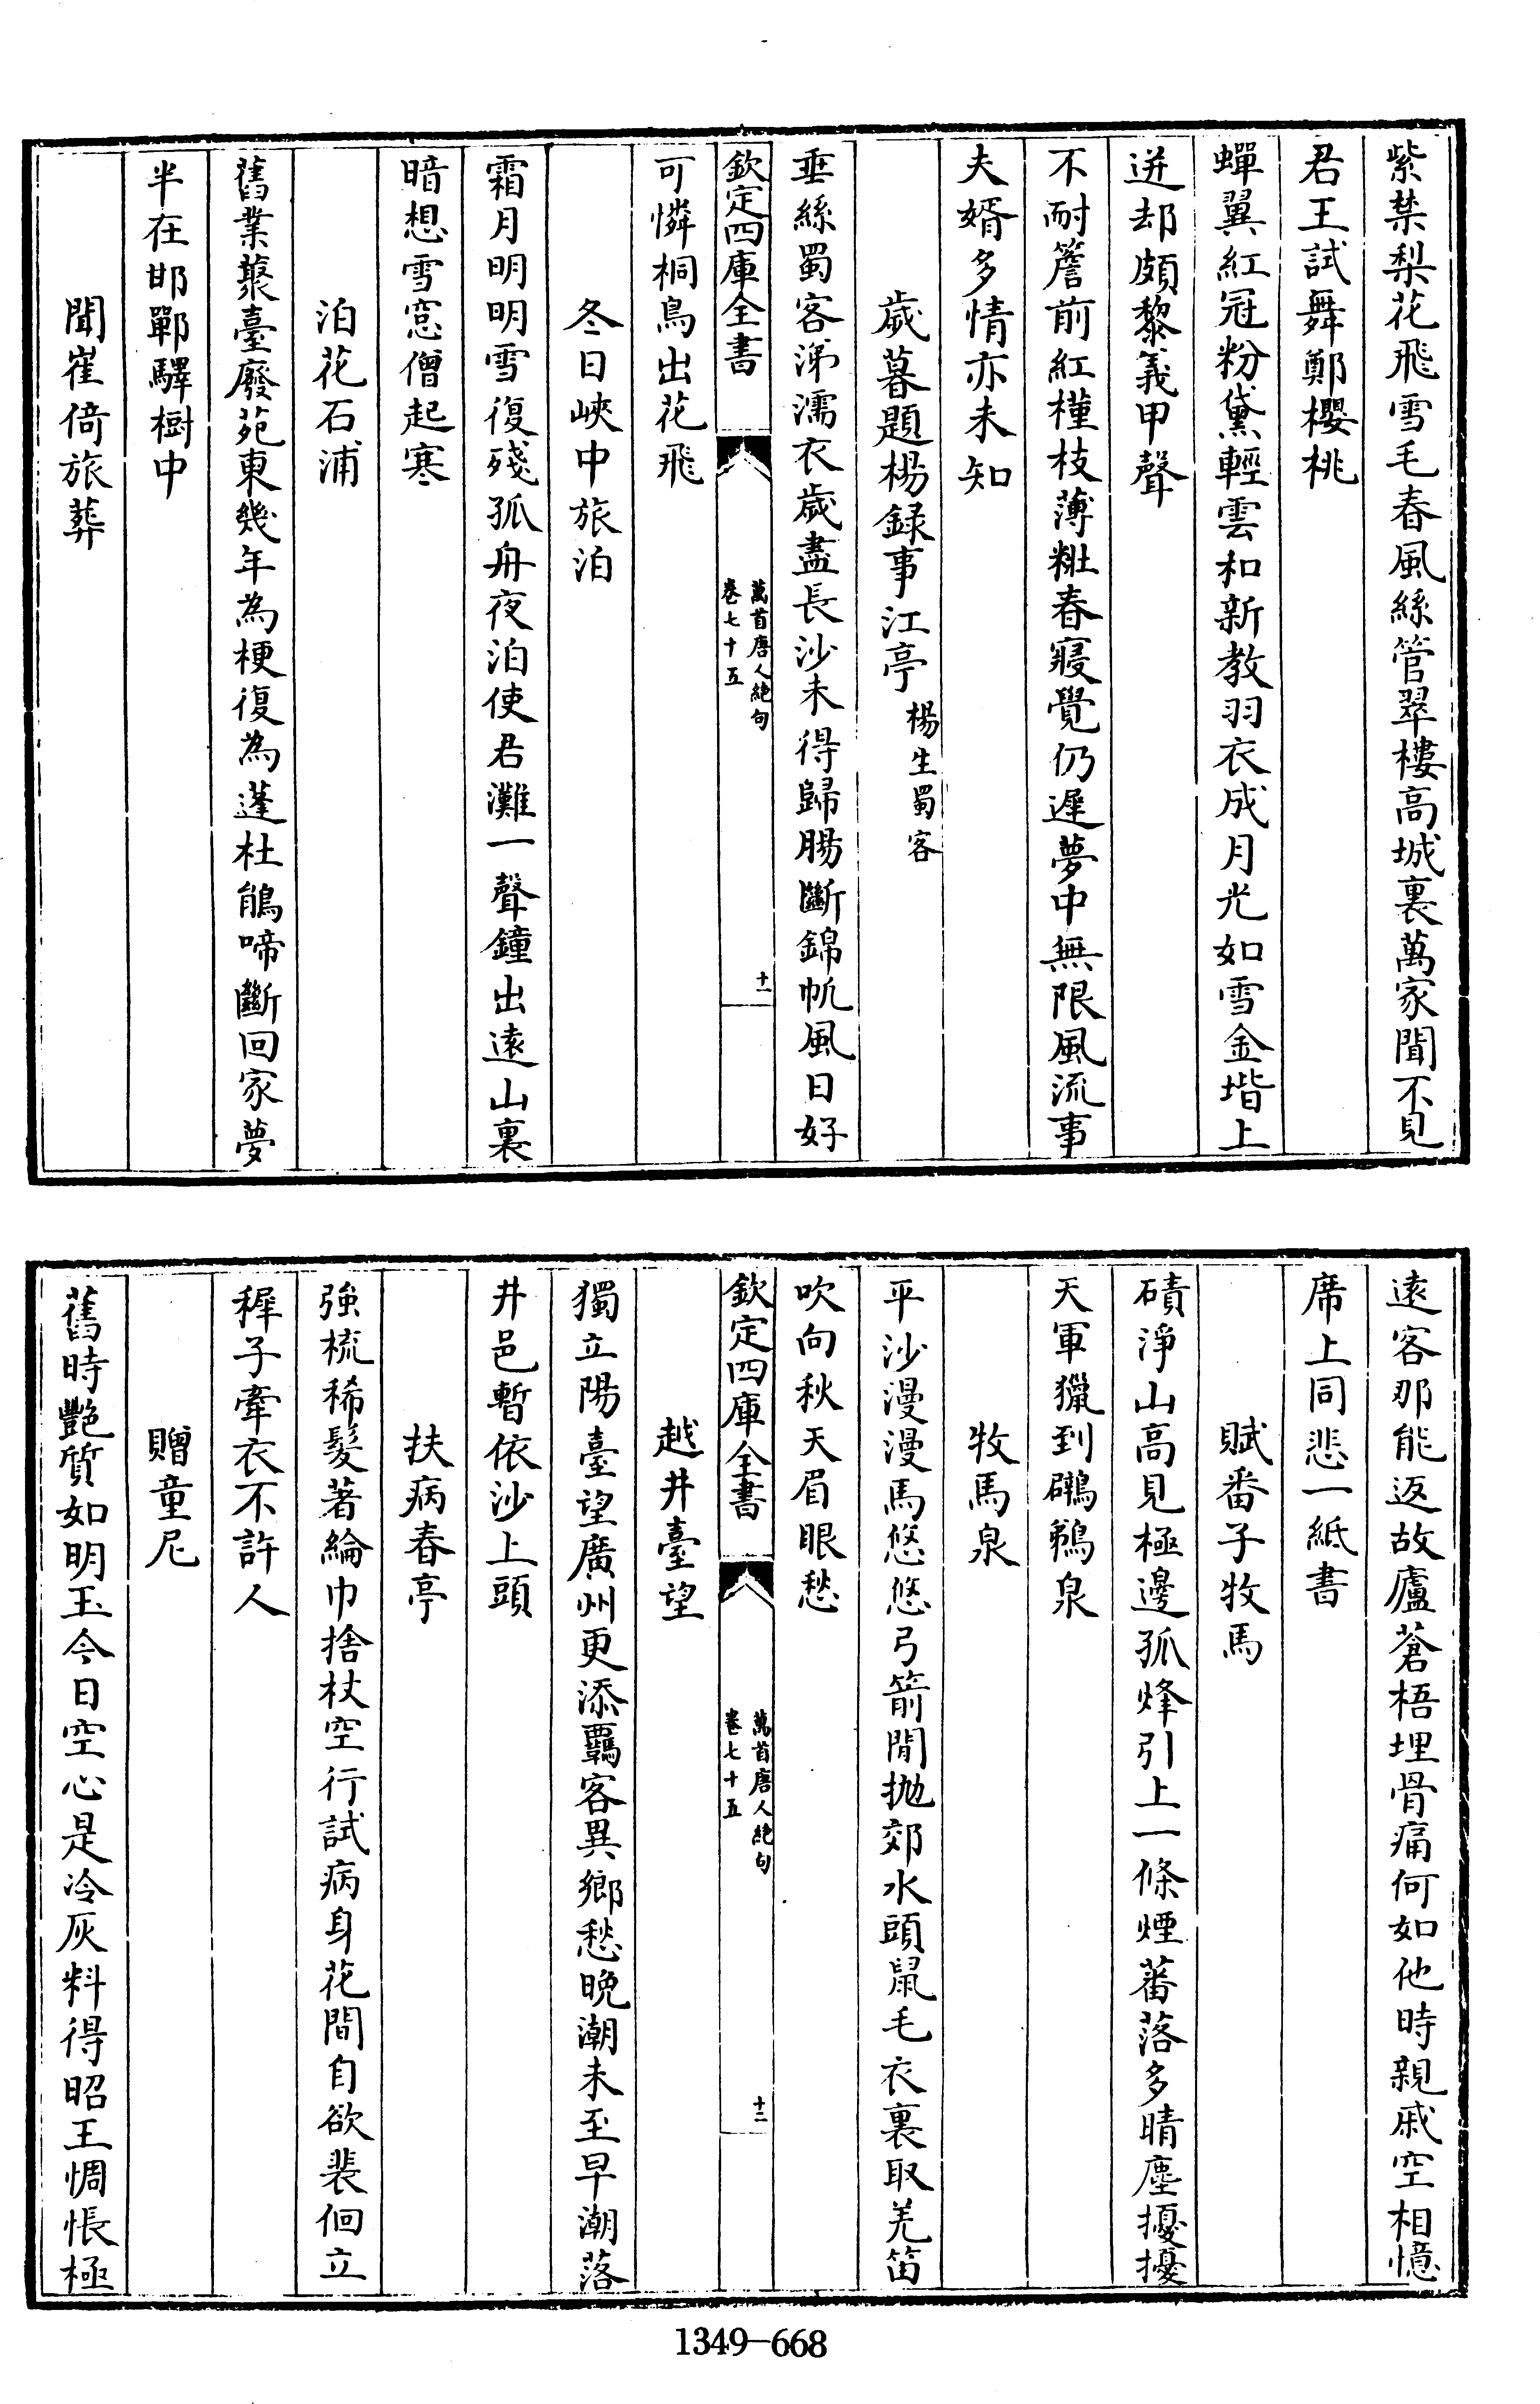 紫禁梨花飛雪毛春風絲管翠樓高城裏萬家聞不見
君王試舞鄭櫻桃
蟬翼紅冠粉黛輕雲和新教羽衣成月光如雪金堦上
迸却頗黎義甲聲
不耐簷前紅槿枝薄粧春寢覺仍遲夢中無限風流事
夫婿多情亦未知
歲暮題楊録事江亭 楊生蜀客
垂絲蜀客涕濡衣歲盡長沙未得歸腸斷錦帆風日好
欽定四庫全書
萬首唐人絶句
卷七十五
十一
可憐桐鳥出花飛
冬日峽中旅泊
霜月明明雪復殘孤舟夜泊使君灘一聲鐘出遠山裏
暗想雪窓僧起寒
泊花石浦
舊業叢臺廢苑東幾年為梗復為蓬杜鵑啼斷回家夢
半在邯鄲驛樹中
聞崔倚旅葬
遠客那能返故廬蒼梧埋骨痛何如他時親戚空相憶
席上同悲一紙書
賦番子牧馬
磧淨山高見極邊孤烽引上一條煙蕃落多晴塵擾擾
天軍獵到鸊鵜泉
牧馬泉
平沙漫漫馬悠悠弓箭閒抛郊水頭鼠毛衣裏取羌笛
吹向秋天眉眼愁
欽定四庫全書
萬首唐人絶句
卷七十五
十二
越井臺望
獨立陽臺望廣州更添羈客異鄉愁晚潮未至早潮落
井邑暫依沙上頭
扶病春亭
強梳稀髮著綸巾捨杖空行試病身花間自欲裴佪立
穉子牽衣不許人
贈童尼
舊時艷質如明玉今日空心是冷灰料得昭王惆悵極
1349-668